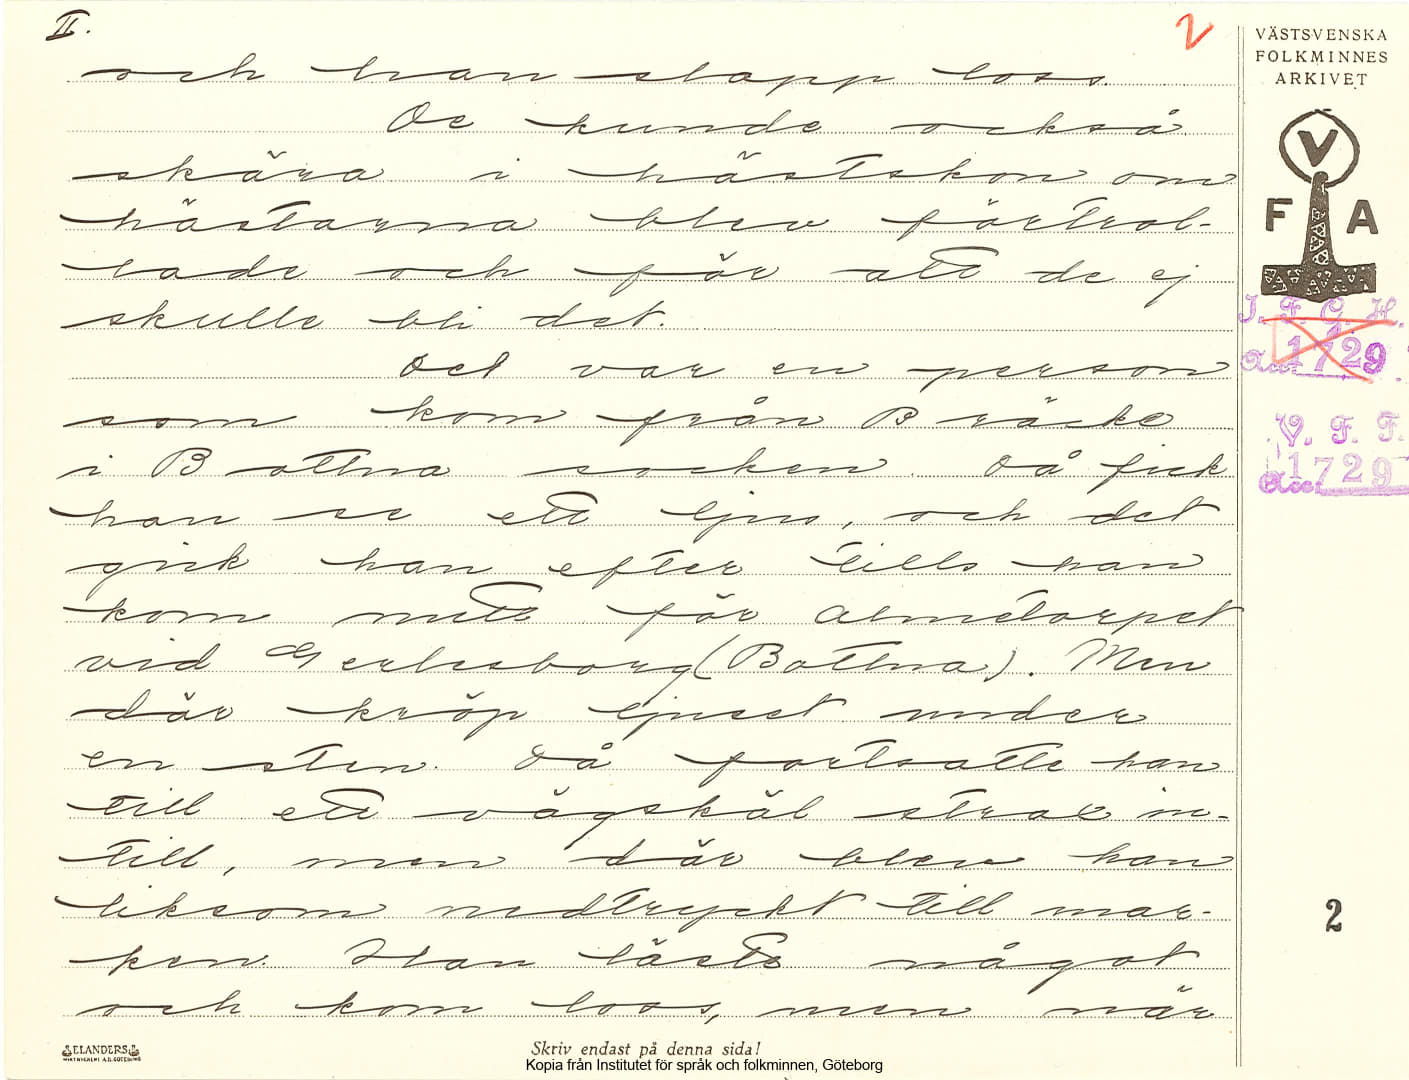 II.
2
och han slapp loss.
De kunde också
skära i hästskon om
hästarna blev förtrol-
lade och för att de ej
skulle bli det.
Det var en person
som kom från Bräcke
i Bottna socken. Då fick
han se ett ljus, och det
gick han efter tills han
kom mitt för Almetorpet
vid Gerlesborg (Bottna). Men
där kröp ljuset under
en sten. Då fortsatte han
till ett vägskäl strax in-
till, men där blev han
liksom nedtryckt till mar-
ken. Han läste något
och kom loss, men när
VÄSTSVENSKA
FOLKMINNES
ARKIVET
V
F A
I. F. G. H.
Acc. 1729
V. F. F.
Acc. 1729
2
ELANDERS
Skriv endast på denna sida!
Kopia från Institutet för språk och folkminnen, Göteborg